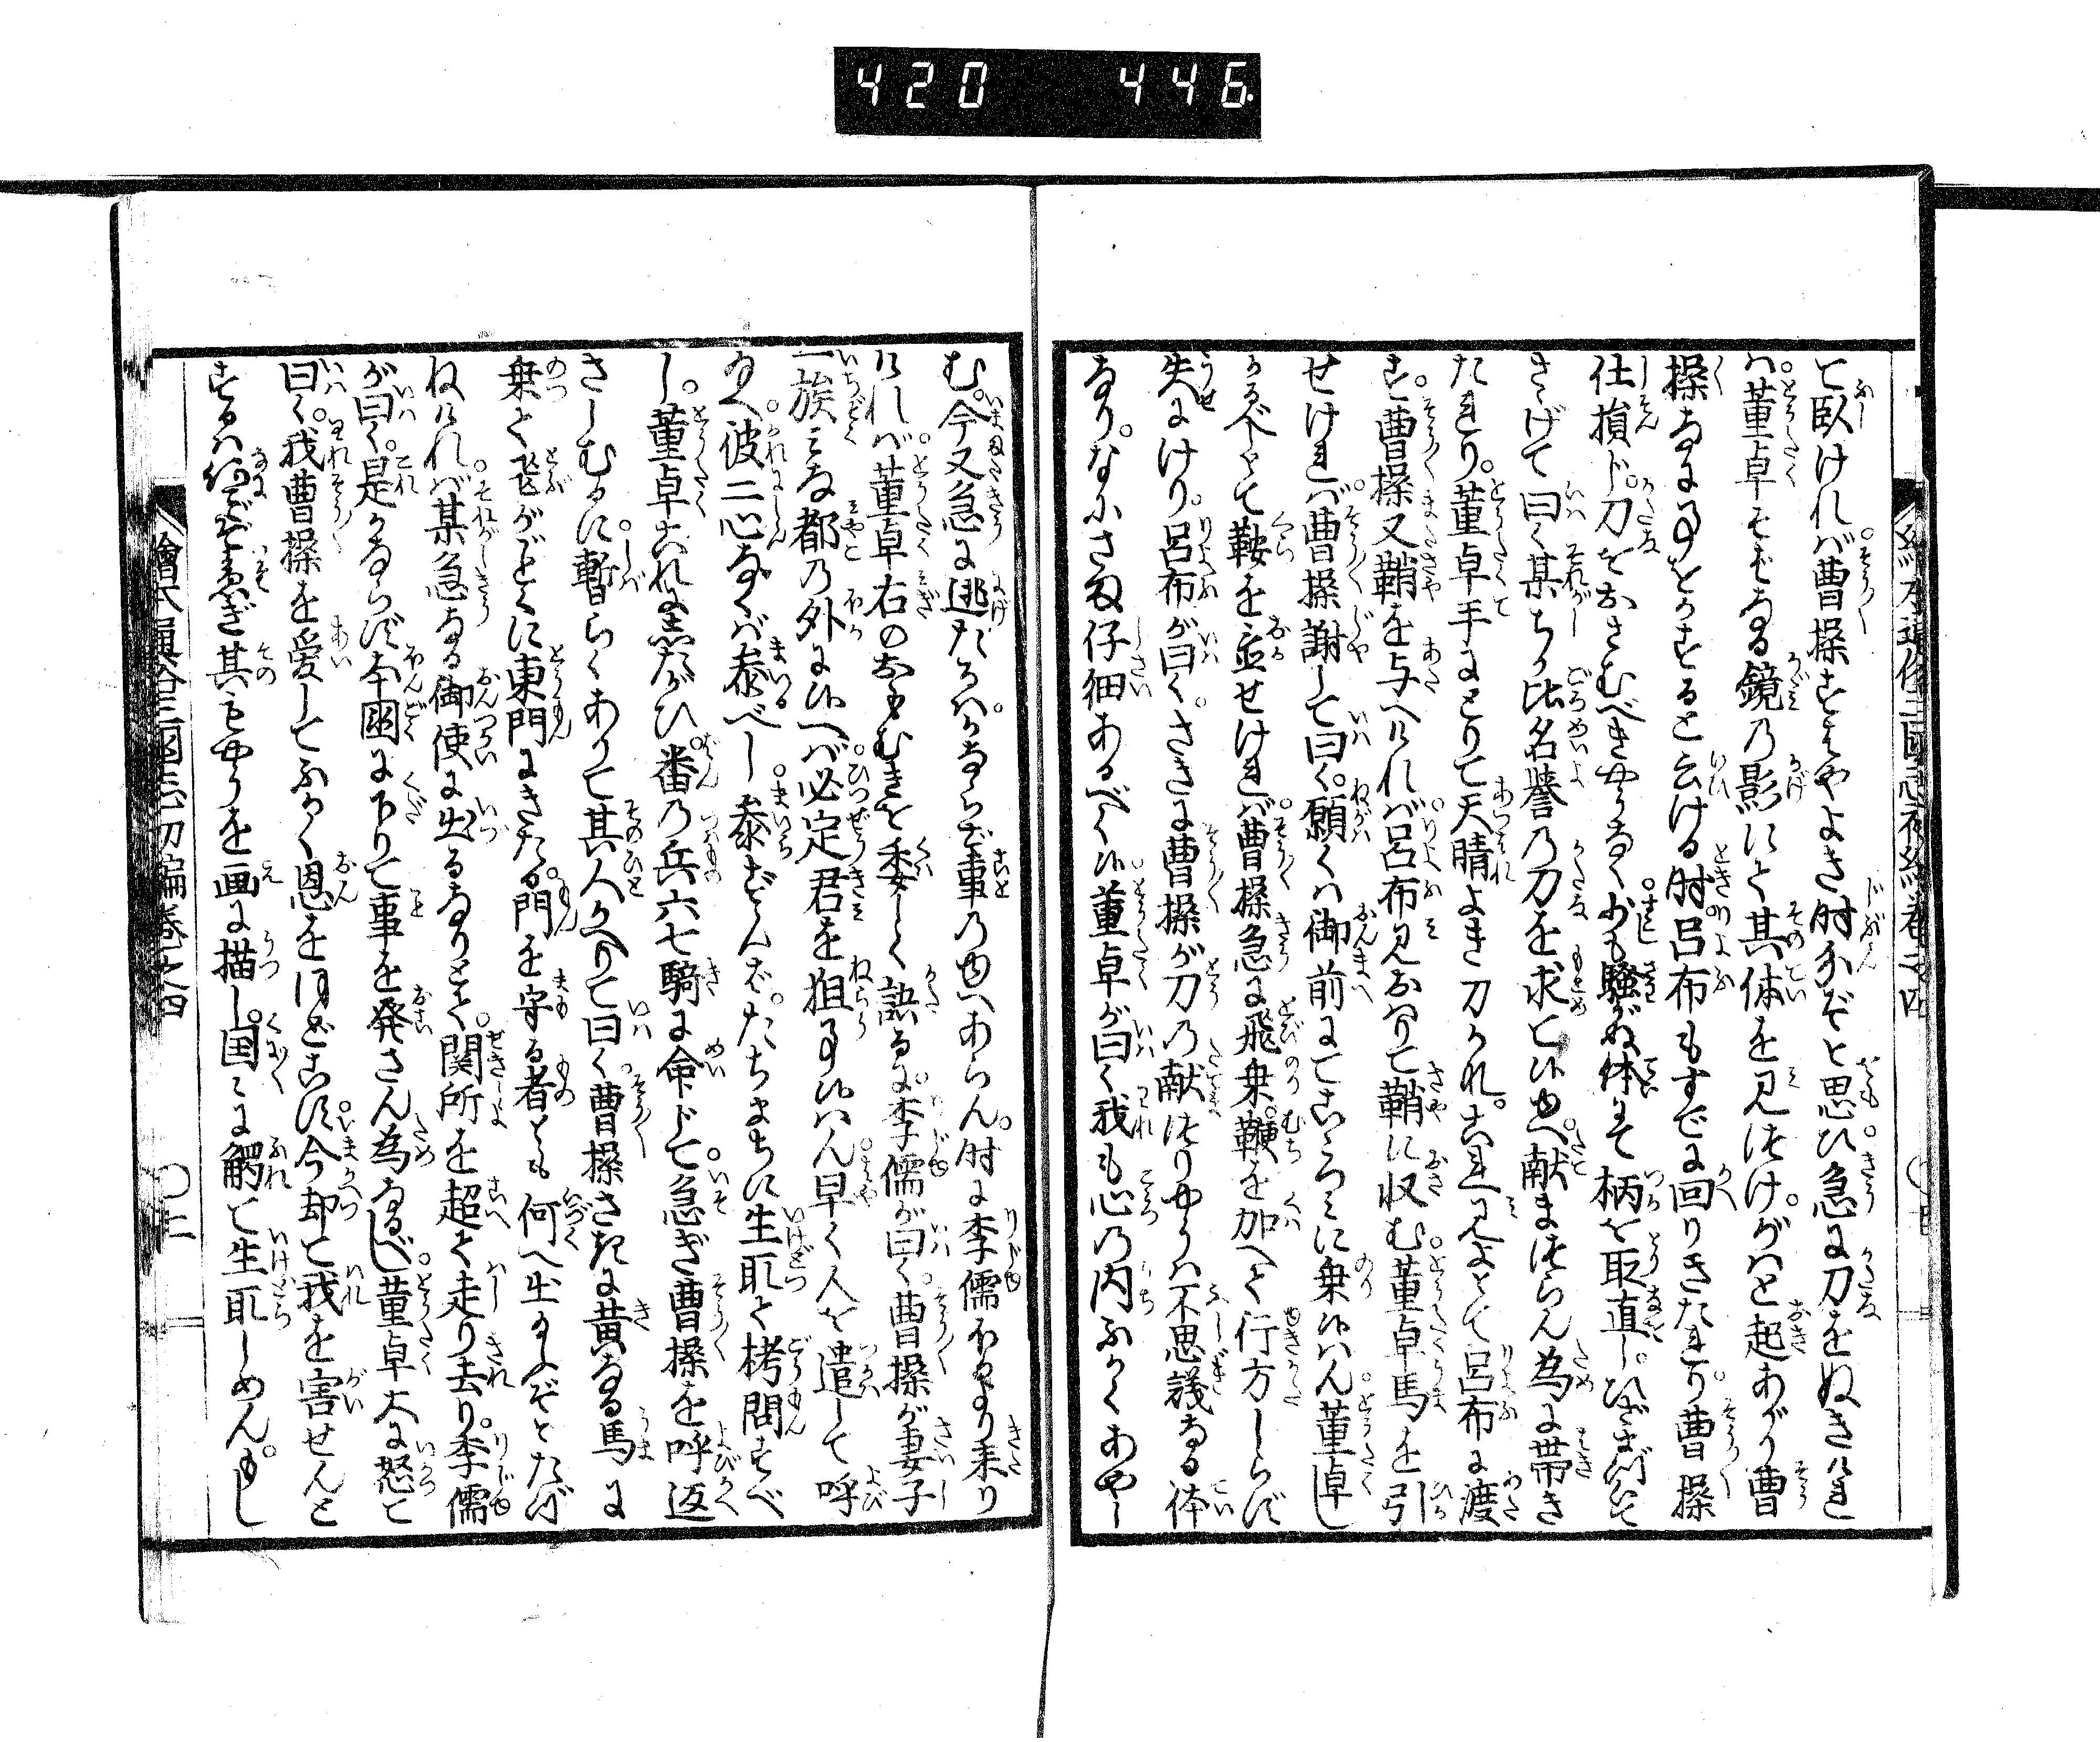 420 446
と臥ければ曹操すはやよき時分ぞと思ひ急に刀をぬきければ
は董卓そばなる鏡の影にて其体を見つけがはと起あがり曹
操なに事をかすると云ける時呂布もすでに回りきたれり曹操
仕損じ刀をおさむべきやうなく少も騒ぬ体にて柄を取直しひざまづいて
さゝげて曰く某ちか比名誉の刀を求て候ゆへ献まつらん為に帯き
たれり董卓手にとりて天晴よき刀かなこれ見よとて呂布に渡
す曹操又鞘を与へければ呂布見おはりて鞘に収む董卓馬を引
せければ曹操謝して曰く願くは御前にてこゝろみに乗候はん董卓し
かるべしとて鞍を置せければ曹操急に飛乗鞭を加へて行方しらず
失にけり呂布が曰くさきに曹操が刀の献つりやうは不思議なる体
なりなにさま仔細あるべく候董卓が曰く我も心の内ふかくあやし
む今又急に逃たるはかならず事のゆへあらん時に李儒ほかより来り
ければ董卓右のおもむきを委しく語るに李儒が曰く曹操が妻子
一族みな都の外に候へば必定君を狙事候はん早く人を遣して呼
給へ彼二心なくば参べし参ずんばたちまちに生取て拷問すべ
し董卓これにしたがひ番の兵六七騎に命じて急ぎ曹操を呼返
さしむるに暫らくありて其人かへりて曰く曹操さきに黄なる馬に
乗て飛がごとくに東門にきたる門を守る者ども何へ出給ふぞとたづ
ねければ某急なる御使に出るなりとて関所を超て走り去り李儒
が曰く是かならず本国に下りて事を発さん為なるべし董卓大に怒て
曰く我曹操を愛してふかく恩をほどこす今却て我を害せんと
するは何ぞや急ぎ其かたちを画に描し国々に觸て生取しめんもし
繪本通俗三国志初編巻之四
〇二